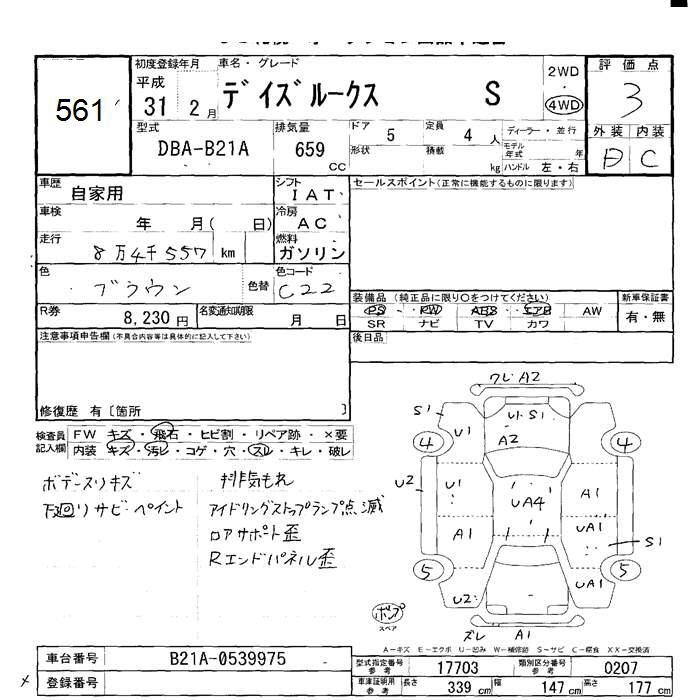 561
初度登録年月 車名・グレード
平成 31 2月 デイズルークス S
2WD
4WD
評価点
3
外装 内装
D C
型式 排気量 ドア 5 定員 4人 ディーラー・並行
DBA-B21A 659 CC 形状 積載 kg モデル年式 年
ハンドル 左・右
車歴 自家用 シフト IAT
車検 年 月( 日) 冷房 AC
走行 8万4千557 km 燃料 ガソリン
色 ブラウン 色替 色コード C22
R券 8,230円 名変通知期限 月 日
セールスポイント(正常に機能するものに限ります)
装備品 (純正品に限り○をつけてください) 新車保証書
PS・PW・ABS・エアB・AW 有・無
SR・ナビ・TV・カワ
後日品
注意事項申告欄(不具合内容等は具体的に記入して下さい)
修復歴 有〔箇所 〕
検査員記入欄 FW キズ・飛石・ヒビ割・リペア跡・×要
内装 キズ・汚レ・コゲ・穴・スレ・キレ・破レ
ボデースリキズ 排気もれ
下廻りサビペイント アイドリングストップランプ点滅
ロアサポート歪
Rエンドパネル歪
ワレA2
S1 U1 U1・S1
4 A2 4
U2 U1 UA4 A1
A1 UA1 S1
5 5
U2 UA1
ボンプ
スペア
ズレ A1
A−キズ E−エクボ U−凹み W−補修跡 S−サビ C−腐食 XX−交換済
車台番号 B21A-0539975
登録番号
型式指定番号 参考 17703 類別区分番号 参考 0207
車庫証明用 参考 長さ 339 cm 幅 147 cm 高さ 177 cm